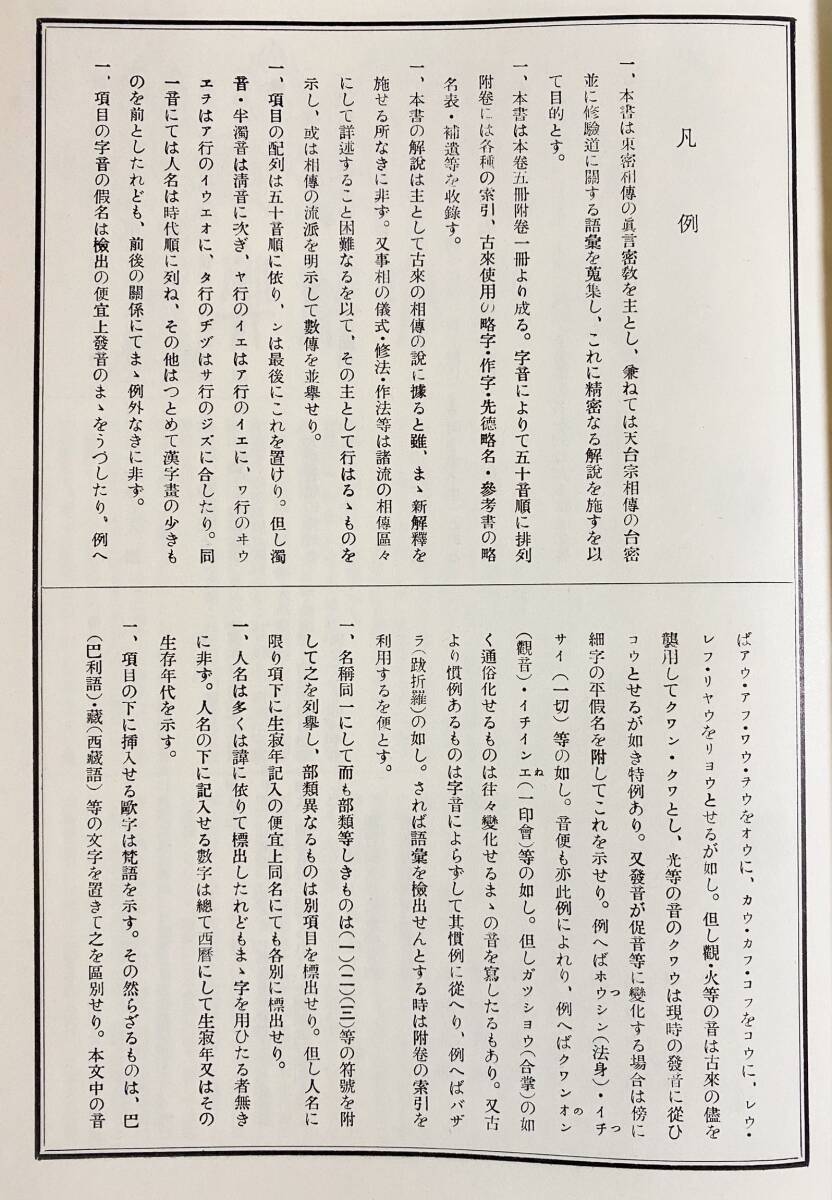 凡例
一、本書は東密相傳の眞言密敎を主とし、兼ねては天台宗相傳の台密
並に修驗道に關する語彙を蒐集し、これに精密なる解說を施すを以
て目的とす。
一、本書は本卷五冊附卷一冊より成る。字音によりて五十音順に排列
附卷には各種の索引、古來使用の略字・作字・先德略名・參考書の略
名表・補遺等を收錄す。
一、本書の解說は主として古來の相傳の說に據ると雖、まゝ新解釋を
施せる所なきに非ず。又事相の儀式・修法・作法等は諸流の相傳區々
にして詳述すること困難なるを以て、その主として行はるゝものを
示し、或は相傳の流派を明示して數傳を並擧せり。
一、項目の配列は五十音順に依り、ンは最後にこれを置けり。但し濁
音・半濁音は淸音に次ぎ、ヤ行のイエはア行のイエに、ワ行のヰウ
ヱヲはア行のイウエオに、タ行のヂヅはサ行のジズに合したり。同
一音にては人名は時代順に列ね、その他はつとめて漢字畫の少きも
のを前としたれども、前後の關係にてまゝ例外なきに非ず。
一、項目の字音の假名は檢出の便宜上發音のまゝをうつしたり、例へ
ばアウ・アフ・ワウ・ヲウをオウに、カウ・カフ・コフをコウに、レウ・
レフ・リヤウをリョウとせるが如し。但し觀・火等の音は古來の儘を
襲用してクワン・クワとし、光等の音のクワウは現時の發音に從ひ
コウとせるが如き特例あり。又發音が促音等に變化する場合は傍に
細字の平假名を附してこれを示せり。例へばホウシン(法身)・イチ
サイ(一切)等の如し。音便も亦此例によれり、例へばクワンオン
(觀音)・イチインエ(一印會)等の如し。但しガツショウ(合掌)の如
く通俗化せるものは往々變化せるまゝの音を寫したるもあり。又古
より慣例あるものは字音によらずして其慣例に從へり、例へばバザ
ラ(跋折羅)の如し。されば語彙を檢出せんとする時は附卷の索引を
利用するを便とす。
一、名稱同一にして而も部類等しきものは(一)(二)(三)等の符號を附
して之を列擧し、部類異なるものは別項目を標出せり。但し人名に
限り項下に生寂年記入の便宜上同名にても各別に標出せり。
一、人名は多くは諱に依りて標出したれどもまゝ字を用ひたる者無き
に非ず。人名の下に記入せる數字は總て西曆にして生寂年又はその
生存年代を示す。
一、項目の下に挿入せる歐字は梵語を示す。その然らざるものは、巴
(巴利語)・藏(西藏語)等の文字を置きて之を區別せり。本文中の音